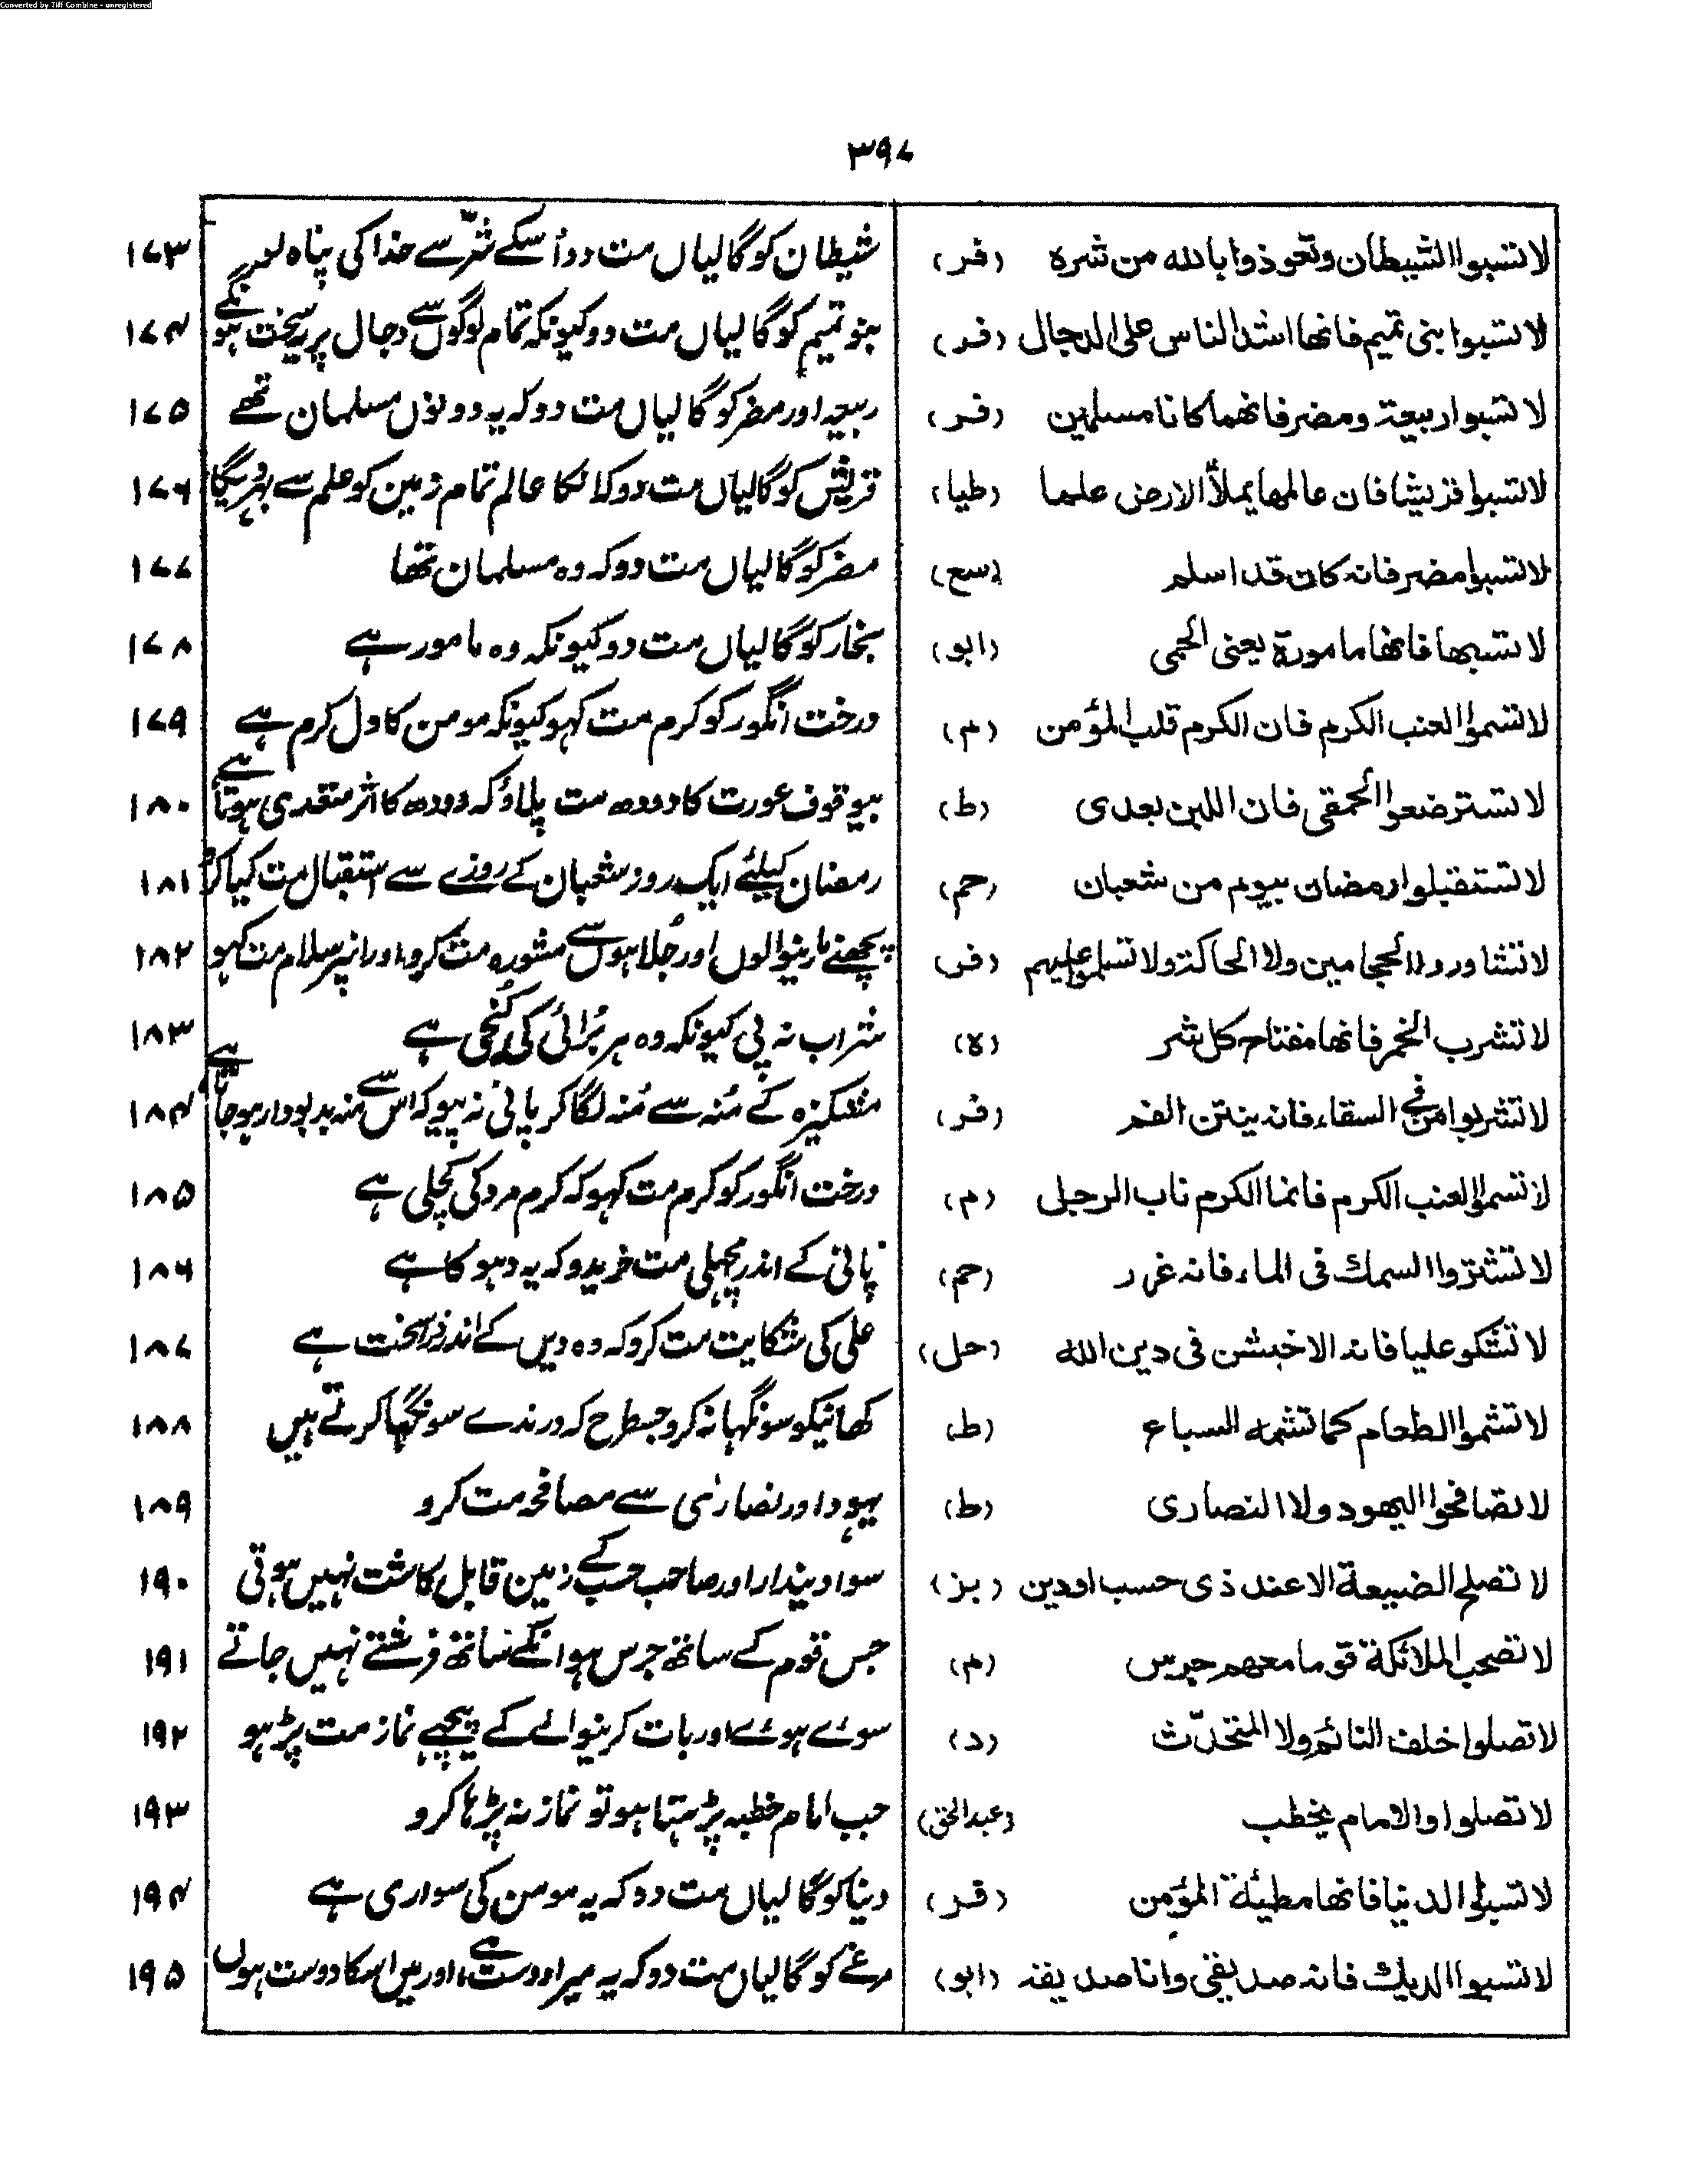 Converted by Tiff Combine - unregistered
۳۹۷
لا تسبوا الشيطان وتعوذوا بالله من شره (فر) شیطان کو گالیاں مت دو اُسکے شرّ سے خدا کی پناہ لو ۱۷۳
لا تسبوا بنی تميم فانها اشد الناس على الدجال (فر) بنو تمیم کو گالیاں مت دو کیونکہ تمام لوگوں سے دجال پر یہ سخت ہونگے ۱۷۴
لا تسبوا ربيعة ومضر فانهما كانا مسلمين (فر) ربیعہ اور مضر کو گالیاں مت دو کہ یہ دونوں مسلمان تھے ۱۷۵
لا تسبوا قريشا فان عالمها يملأ الارض علما (طیا) قریش کو گالیاں مت دو کہ انکا عالم تمام زمین کو علم سے بھر دیگا ۱۷۶
لا تسبوا مضر فانه كان قد اسلم (سع) مضر کو گالیاں مت دو کہ وہ مسلمان تھا ۱۷۷
لا تسبها فانها مامورة يعنى الحمى (ابو) بخار کو گالیاں مت دو کیونکہ وہ مامور ہے ۱۷۸
لا تسموا العنب الكرم فان الكرم قلب المؤمن (م) درخت انگور کو کرم مت کہو کیونکہ مومن کا دل کرم ہے ۱۷۹
لا تسترضعوا الحمقى فان اللبن يعدى (ط) بیوقوف عورت کا دودھ مت پلاؤ کہ دودھ کا اثر متعدی ہوتا ہے ۱۸۰
لا تستقبلوا رمضان بيوم من شعبان (حم) رمضان کیلئے ایک روز شعبان کے روزے سے استقبال مت کیا کرو ۱۸۱
لا تشاوروا الحجامين ولا الحاكة ولا تسلموا عليهم (فر) پچھنے مارنیوالوں اور جُلاہوں سے مشورہ مت کرو اور انپر سلام مت کہو ۱۸۲
لا تشرب الخمر فانها مفتاح كل شر (ه) شراب نہ پی کیونکہ وہ ہر بُرائی کی کُنجی ہے ۱۸۳
لا تشربوا من فى السقاء فانه ينتن الفم (فر) مشکیزہ کے مُنہ سے مُنہ لگا کر پانی نہ پیو کہ اس سے منہ بدبودار ہو جاتا ہے ۱۸۴
لا تسموا العنب الكرم فانما الكرم ناب الرجل (م) درخت انگور کو کرم مت کہو کہ کرم مرد کی کچلی ہے ۱۸۵
لا تشتروا السمك فى الماء فانه غرر (حم) پانی کے اندر مچہلی مت خریدو کہ یہ دہوکا ہے ۱۸۶
لا تشكو عليا فانه الاخيشن فى دين الله (حل) علی کی شکایت مت کرو کہ وہ دین کے اندر ذرا سخت ہے ۱۸۷
لا تشموا الطعام كما تشمه السباع (ط) کھانیکو سونگہا نہ کرو جسطرح کہ درندے سونگہا کرتے ہیں ۱۸۸
لا تصافحوا اليهود ولا النصارى (ط) یہود اور نصارٰی سے مصافحہ مت کرو ۱۸۹
لا تصلح الضيعة الا عند ذى حسب او دين (بز) سوا دیندار اور صاحب حسب کے زمین قابل کاشت نہیں ہوتی ۱۹۰
لا تصحب الملائكة قوما معهم جرس (م) جس قوم کے ساتھ جرس ہو انکے ساتھ فرشتے نہیں جاتے ۱۹۱
لا تصلوا خلف النائم ولا المتحدّث (د) سوئے ہوئے اور بات کرنیوالے کے پیچہے نماز مت پڑہو ۱۹۲
لا تصلوا والامام يخطب (عبدالحق) جب امام خطبہ پڑہتا ہو تو نماز نہ پڑہا کرو ۱۹۳
لا تسبوا الدنيا فانها مطيئة المؤمن (قر) دنیا کو گالیاں مت دو کہ یہ مومن کی سواری ہے ۱۹۴
لا تسبوا الديك فانه صديقى وانا صديقه (ابو) مرغے کو گالیاں مت دو کہ یہ میرا دوست ہے اور میں اسکا دوست ہوں ۱۹۵